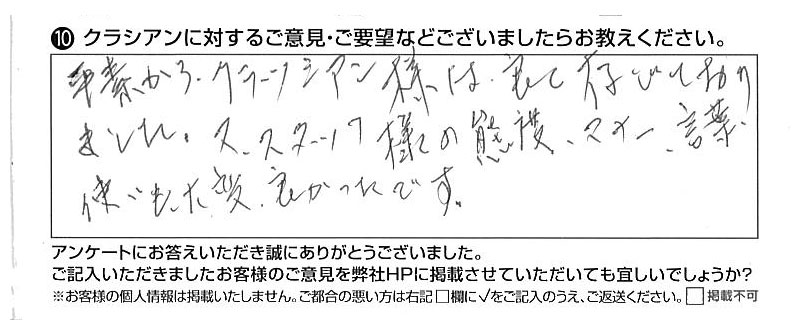 ⑩ クラシアンに対するご意見・ご要望などございましたらお教えください。
平素から、クラーシアン様は、良く存じており
ました。又、スタッフ様の態度、マナー、言葉
使いも、大変、良かったです。
アンケートにお答えいただき誠にありがとうございました。
ご記入いただきましたお客様のご意見を弊社HPに掲載させていただいても宜しいでしょうか?
※お客様の個人情報は掲載いたしません。ご都合の悪い方は右記□欄に✓をご記入のうえ、ご返送ください。□掲載不可